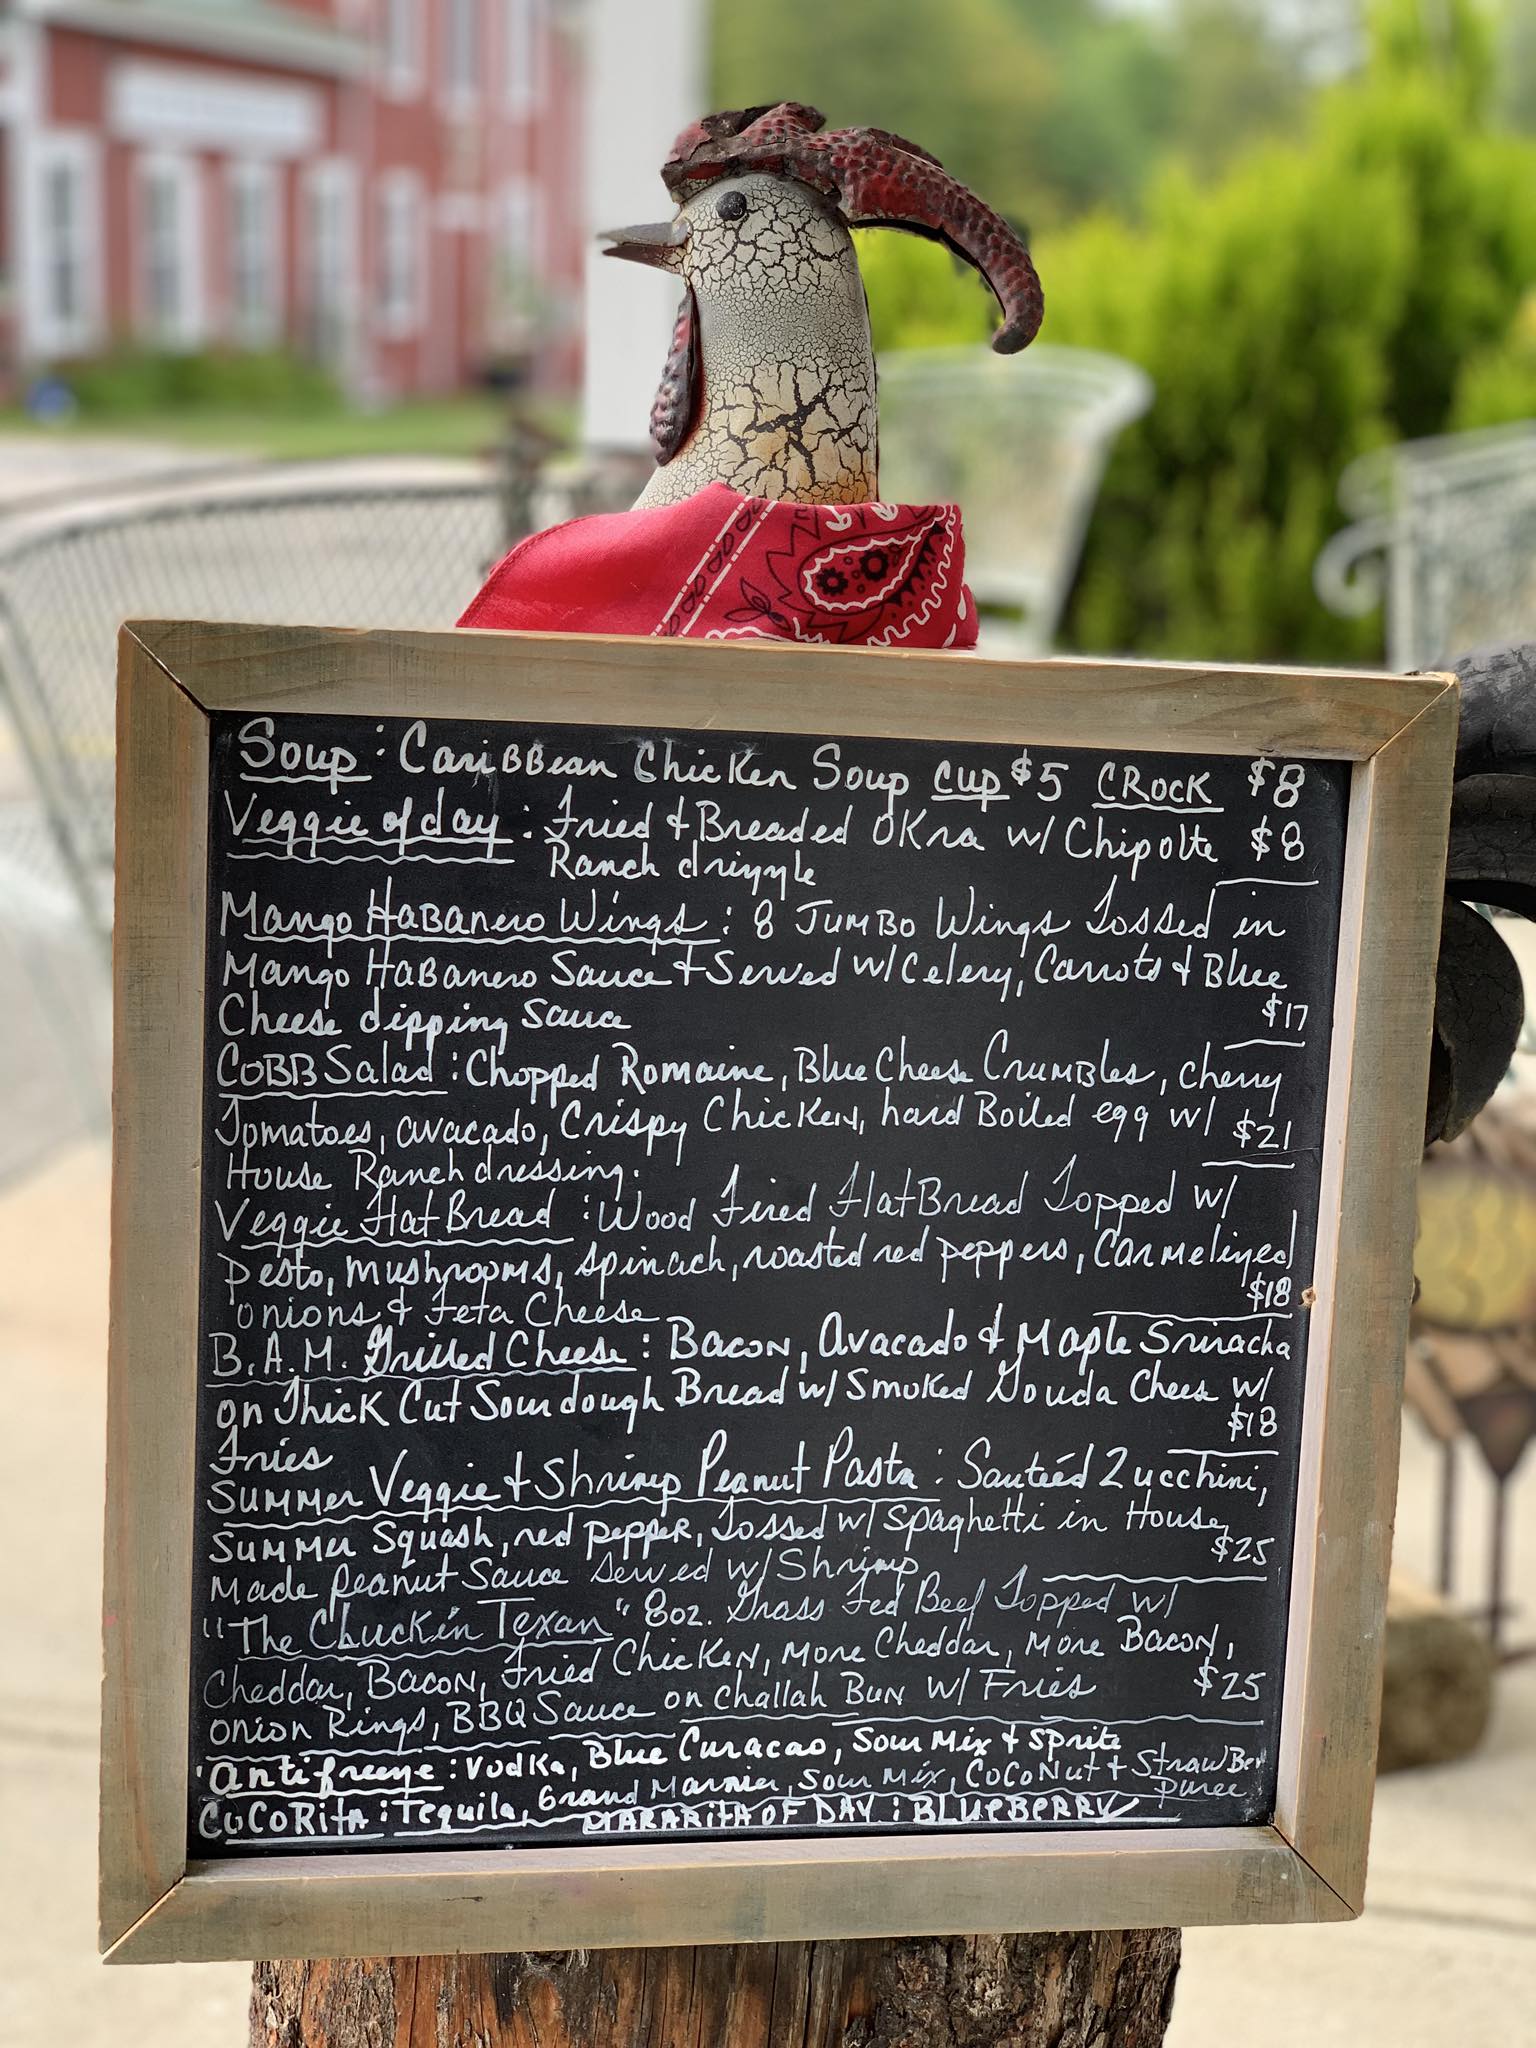 Soup: Caribbean Chicken Soup cup $5 CROCK $8
Veggie of day: Fried & Breaded OKra w/ Chipolte $8
Ranch drizzle
Mango Habanero Wings: 8 Jumbo Wings Tossed in
Mango Habanero Sauce & Served w/ Celery, Carrots & Blue
Cheese dipping sauce $17
COBB Salad: Chopped Romaine, Blue Cheese Crumbles, cherry
Tomatoes, avacado, Crispy Chicken, hard Boiled egg w/ $21
House Ranch dressing.
Veggie FlatBread: Wood Fired FlatBread Topped w/
pesto, mushrooms, spinach, roasted red peppers, Carmelized
onions & Feta Cheese $18
B.A.M. Grilled Cheese: Bacon, Avacado & Maple Sriracha
on Thick Cut Sourdough Bread w/ Smoked Gouda Cheese w/
Fries $18
Summer Veggie & Shrimp Peanut Pasta: Sautéed Zucchini,
Summer Squash, red pepper, Tossed w/ spaghetti in House
Made peanut Sauce served w/ Shrimp $25
"The Chuckin Texan" 8oz. Grass Fed Beef Topped w/
Cheddar, Bacon, Fried Chicken, More Cheddar, More Bacon,
onion Rings, BBQ Sauce on challah Bun w/ Fries $25
"Antifreeze: Vodka, Blue Curacao, Sour Mix & Sprite
COCORITA: Tequila, Grand Marnier, Sour Mix, CoCoNut & StrawBer
puree
MARARITA OF DAY: BLUEBERRY